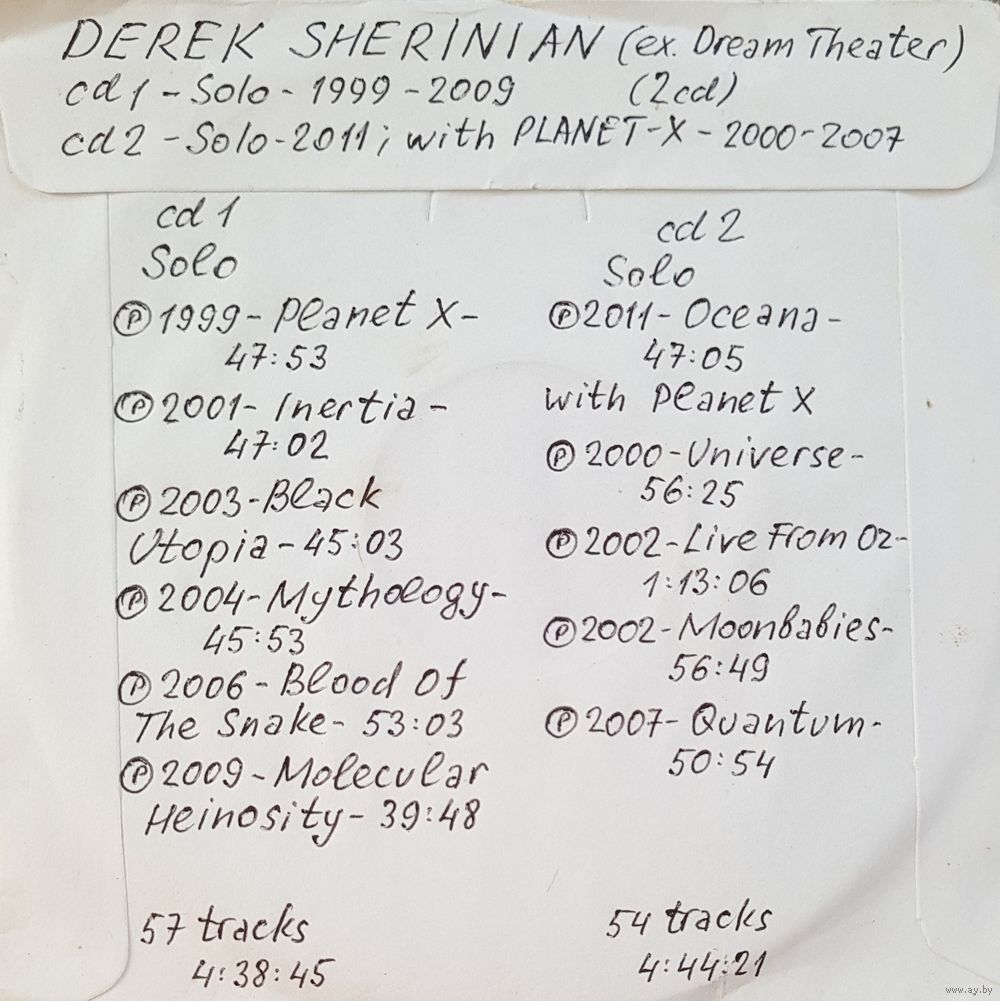 DEREK SHERINIAN (ex. Dream Theater)
cd1 - Solo - 1999 - 2009 (2cd)
cd2 - Solo - 2011; with PLANET-X - 2000-2007
cd 1
Solo
Ⓟ 1999 - Planet X -
47:53
Ⓟ 2001 - Inertia -
47:02
Ⓟ 2003 - Black
Utopia - 45:03
Ⓟ 2004 - Mythology -
45:53
Ⓟ 2006 - Blood Of
The Snake - 53:03
Ⓟ 2009 - Molecular
Heinosity - 39:48
57 tracks
4:38:45
cd 2
Solo
Ⓟ 2011 - Oceana -
47:05
with Planet X
Ⓟ 2000 - Universe -
56:25
Ⓟ 2002 - Live From Oz -
1:13:06
Ⓟ 2002 - Moonbabies -
56:49
Ⓟ 2007 - Quantum -
50:54
54 tracks
4:44:21
www.ay.by